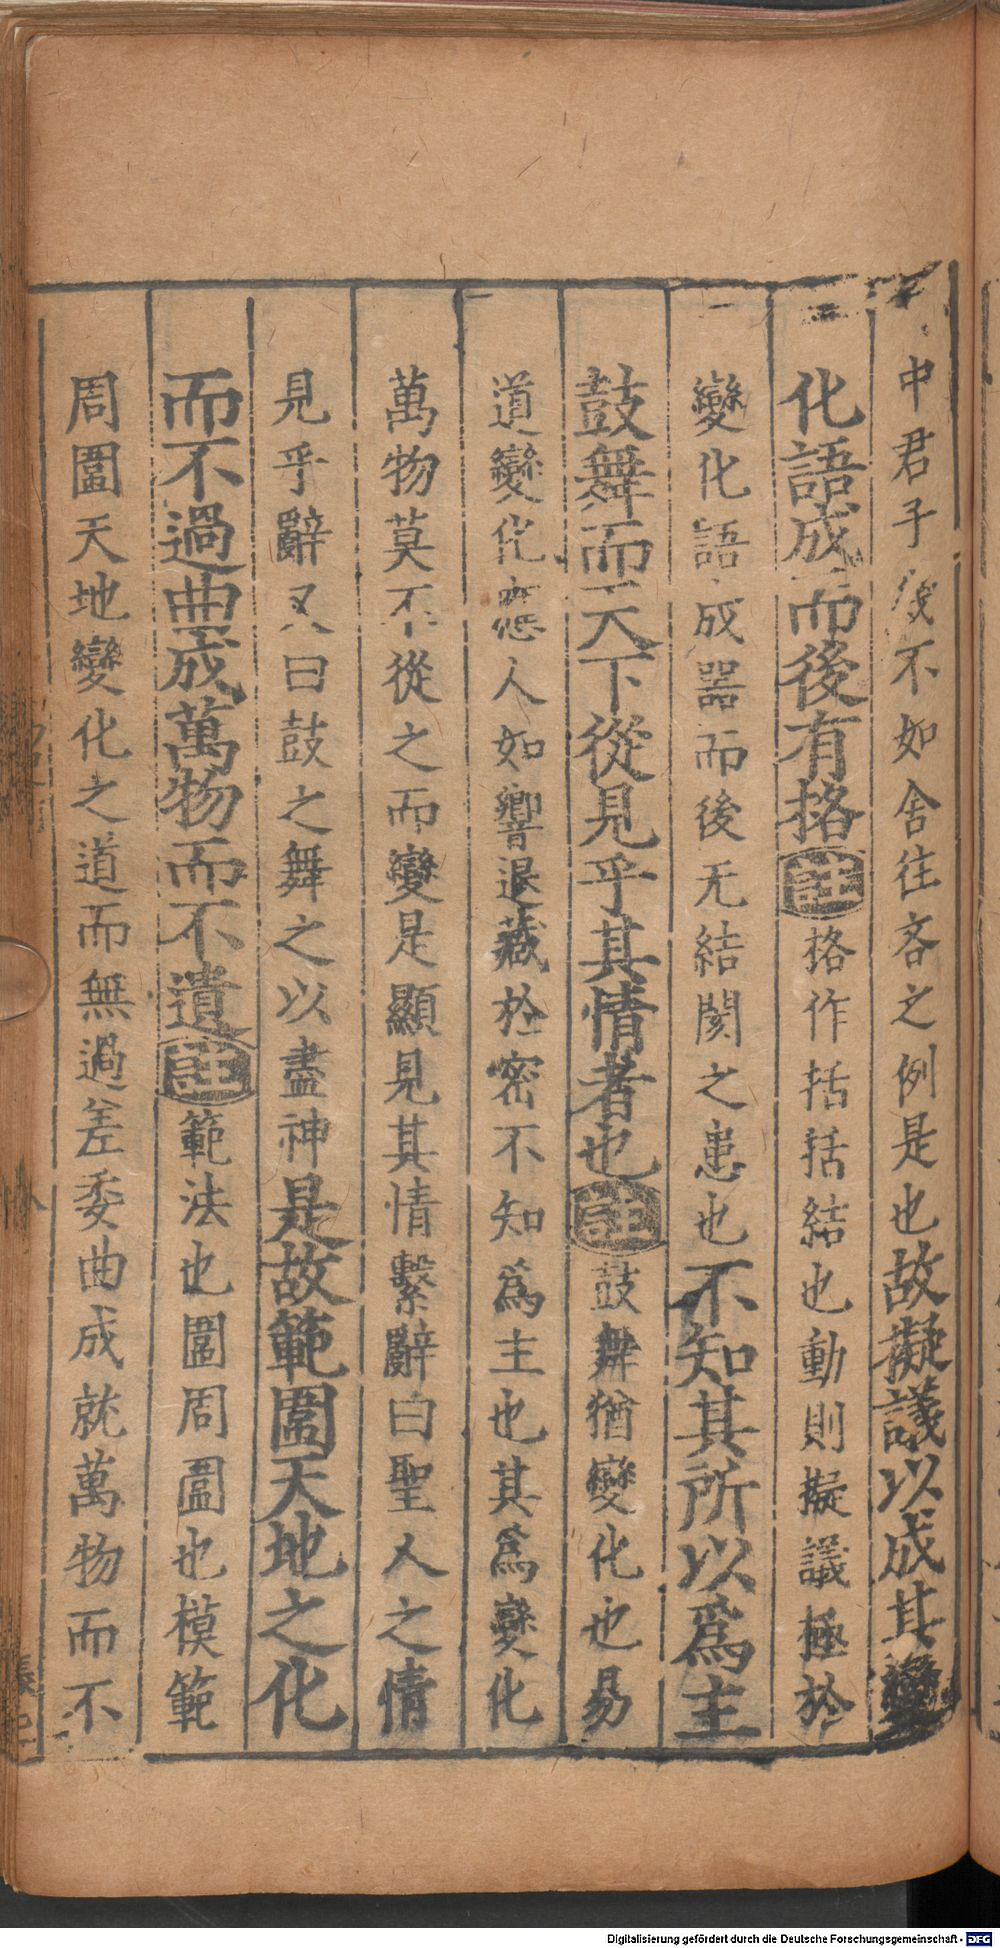 中君子後不如舍往吝之例是也故擬議以成其變
化語成而後有挌註挌作括括結也動則擬議極於
變化語成器而後无結閡之患也不知其所以為主
鼓舞而天下從見乎其情者也註鼓舞猶變化也易
道變化應人如響退藏於密不知爲主也其爲變化
萬物莫不從之而變是顯見其情繫辭曰聖人之情
見乎辭又曰鼓之舞之以盡神是故範圍天地之化
而不過曲成萬物而不遺註範法也圍周圍也模範
周圍天地變化之道而無過差委曲成就萬物而不
Digitalisierung gefördert durch die Deutsche Forschungsgemeinschaft - DFG